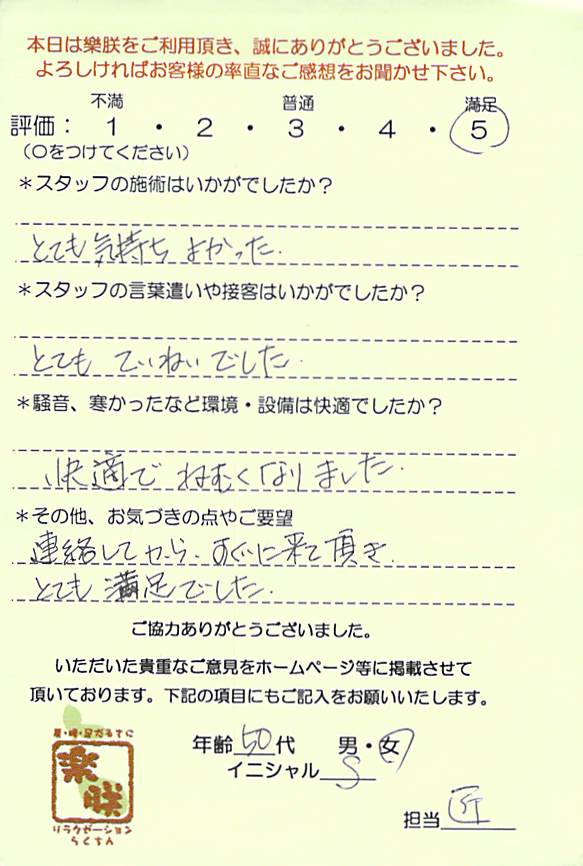 本日は樂朕をご利用頂き、誠にありがとうございました。
よろしければお客様の率直なご感想をお聞かせ下さい。
不満 普通 満足
評価： 1 ・ 2 ・ 3 ・ 4 ・ 5
（○をつけてください）
＊スタッフの施術はいかがでしたか？
とても気持ちよかった.
＊スタッフの言葉遣いや接客はいかがでしたか？
とても ていねいでした.
＊騒音、寒かったなど環境・設備は快適でしたか？
快適で ねむくなりました.
＊その他、お気づきの点やご要望
連絡してから、すぐに来て頂き
とても 満足でした.
ご協力ありがとうございました。
いただいた貴重なご意見をホームページ等に掲載させて
頂いております。下記の項目にもご記入をお願いいたします。
年齢 50 代 男・女
イニシャル S
担当 匠
樂朕
リラクゼーション
らくちん